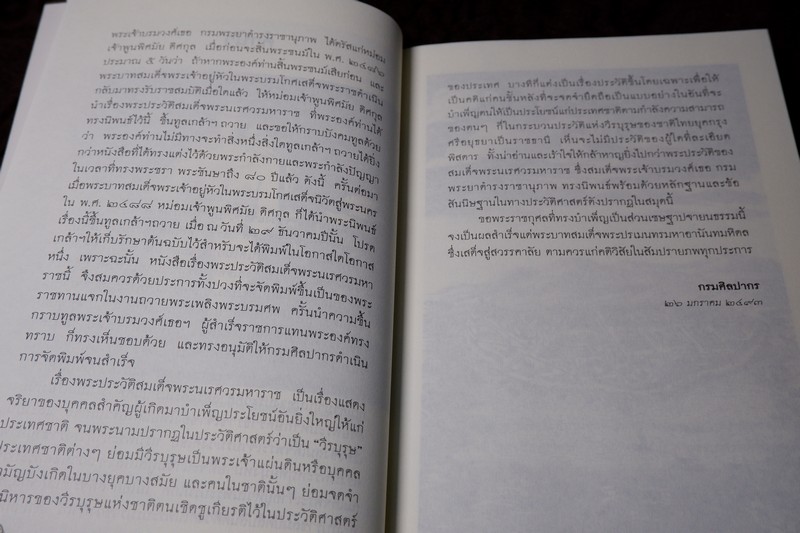 พระเจ้าบรมวงศ์เธอ กรมพระยาดำรงราชานุภาพ ได้ตรัสแก่หม่อม
เจ้าพูนพิศมัย ดิศกุล เมื่อก่อนจะสิ้นพระชนม์ใน พ.ศ. ๒๔๘๖
ประมาณ ๕ วันว่า ถ้าหากพระองค์ท่านสิ้นพระชนม์เสียก่อน และ
พระบาทสมเด็จพระเจ้าอยู่หัวในพระบรมโกศเสด็จพระราชดำเนิน
กลับมาทรงรับราชสมบัติเมื่อใดแล้ว ให้หม่อมเจ้าพูนพิศมัย ดิศกุล
นำเรื่องพระประวัติสมเด็จพระนเรศวรมหาราช ที่พระองค์ท่านได้
ทรงนิพนธ์ไว้นี้ ขึ้นทูลเกล้าฯ ถวาย และขอให้กราบบังคมทูลด้วย
ว่า พระองค์ท่านไม่มีทางจะทำสิ่งหนึ่งสิ่งใดทูลเกล้าฯ ถวายได้ยิ่ง
กว่าหนังสือที่ได้ทรงแต่งไว้ด้วยพระกำลังกายและพระกำลังปัญญา
ในเวลาที่ทรงพระชรา พระชันษาถึง ๘๐ ปีแล้ว ดังนี้ ครั้นต่อมา
เมื่อพระบาทสมเด็จพระเจ้าอยู่หัวในพระบรมโกศเสด็จนิวัตสู่พระนคร
ใน พ.ศ. ๒๔๘๘ หม่อมเจ้าพูนพิศมัย ดิศกุล ก็ได้นำพระนิพนธ์
เรื่องนี้ขึ้นทูลเกล้าฯถวาย เมื่อ ณ วันที่ ๒๙ ธันวาคมปีนั้น โปรด
เกล้าฯให้เก็บรักษาต้นฉบับไว้สำหรับจะได้พิมพ์ในโอกาสใดโอกาส
หนึ่ง เพราะฉะนั้น หนังสือเรื่องพระประวัติสมเด็จพระนเรศวรมหา
ราชนี้ จึงสมควรด้วยประการทั้งปวงที่จะจัดพิมพ์ขึ้นเป็นของพระ
ราชทานแจกในงานถวายพระเพลิงพระบรมศพ ครั้นนำความขึ้น
กราบทูลพระเจ้าบรมวงศ์เธอฯ ผู้สำเร็จราชการแทนพระองค์ทรง
ทราบ ก็ทรงเห็นชอบด้วย และทรงอนุมัติให้กรมศิลปากรดำเนิน
การจัดพิมพ์จนสำเร็จ
เรื่องพระประวัติสมเด็จพระนเรศวรมหาราช เป็นเรื่องแสดง
จริยาของบุคคลสำคัญผู้เกิดมาบำเพ็ญประโยชน์อันยิ่งใหญ่ให้แก่
ประเทศชาติ จนพระนามปรากฏในประวัติศาสตร์ว่าเป็น “วีรบุรุษ”
ประเทศชาติต่างๆ ย่อมมีวีรบุรุษเป็นพระเจ้าแผ่นดินหรือบุคคล
สามัญบังเกิดในบางยุคบางสมัย และคนในชาตินั้นๆ ย่อมจดจำ
นิหารของวีรบุรุษแห่งชาติตนเชิดชูเกียรติไว้ในประวัติศาสตร์
ของประเทศ บางทีก็แต่งเป็นเรื่องประวัติขึ้นโดยเฉพาะเพื่อให้
เป็นคติแก่คนชั้นหลังที่จะจดจำยึดถือเป็นแบบอย่างในอันที่จะ
บำเพ็ญตนให้เป็นประโยชน์แก่ประเทศชาติตามกำลังความสามารถ
ของตนๆ ก็ในกระบวนประวัติแห่งวีรบุรุษของชาติไทยยุคกรุง
ศรีอยุธยาเป็นราชธานี เห็นจะไม่มีประวัติของผู้ใดที่ละเอียด
พิสดาร ทั้งน่าอ่านและเร้าใจให้กล้าหาญยิ่งไปกว่าพระประวัติของ
สมเด็จพระนเรศวรมหาราช ซึ่งสมเด็จพระเจ้าบรมวงศ์เธอ กรม
พระยาดำรงราชานุภาพ ทรงนิพนธ์พร้อมด้วยหลักฐานและข้อ
สันนิษฐานในทางประวัติศาสตร์ดังปรากฏในสมุดนี้
ขอพระราชกุศลที่ทรงบำเพ็ญเป็นส่วนเชษฐาปจายนธรรมนี้
จงเป็นผลสำเร็จแด่พระบาทสมเด็จพระปรเมนทรมหาอานันทมหิดล
ซึ่งเสด็จสู่สวรรคาลัย ตามควรแก่คติวิสัยในสัมปรายภพทุกประการ
กรมศิลปากร
๒๖ มกราคม ๒๔๙๓